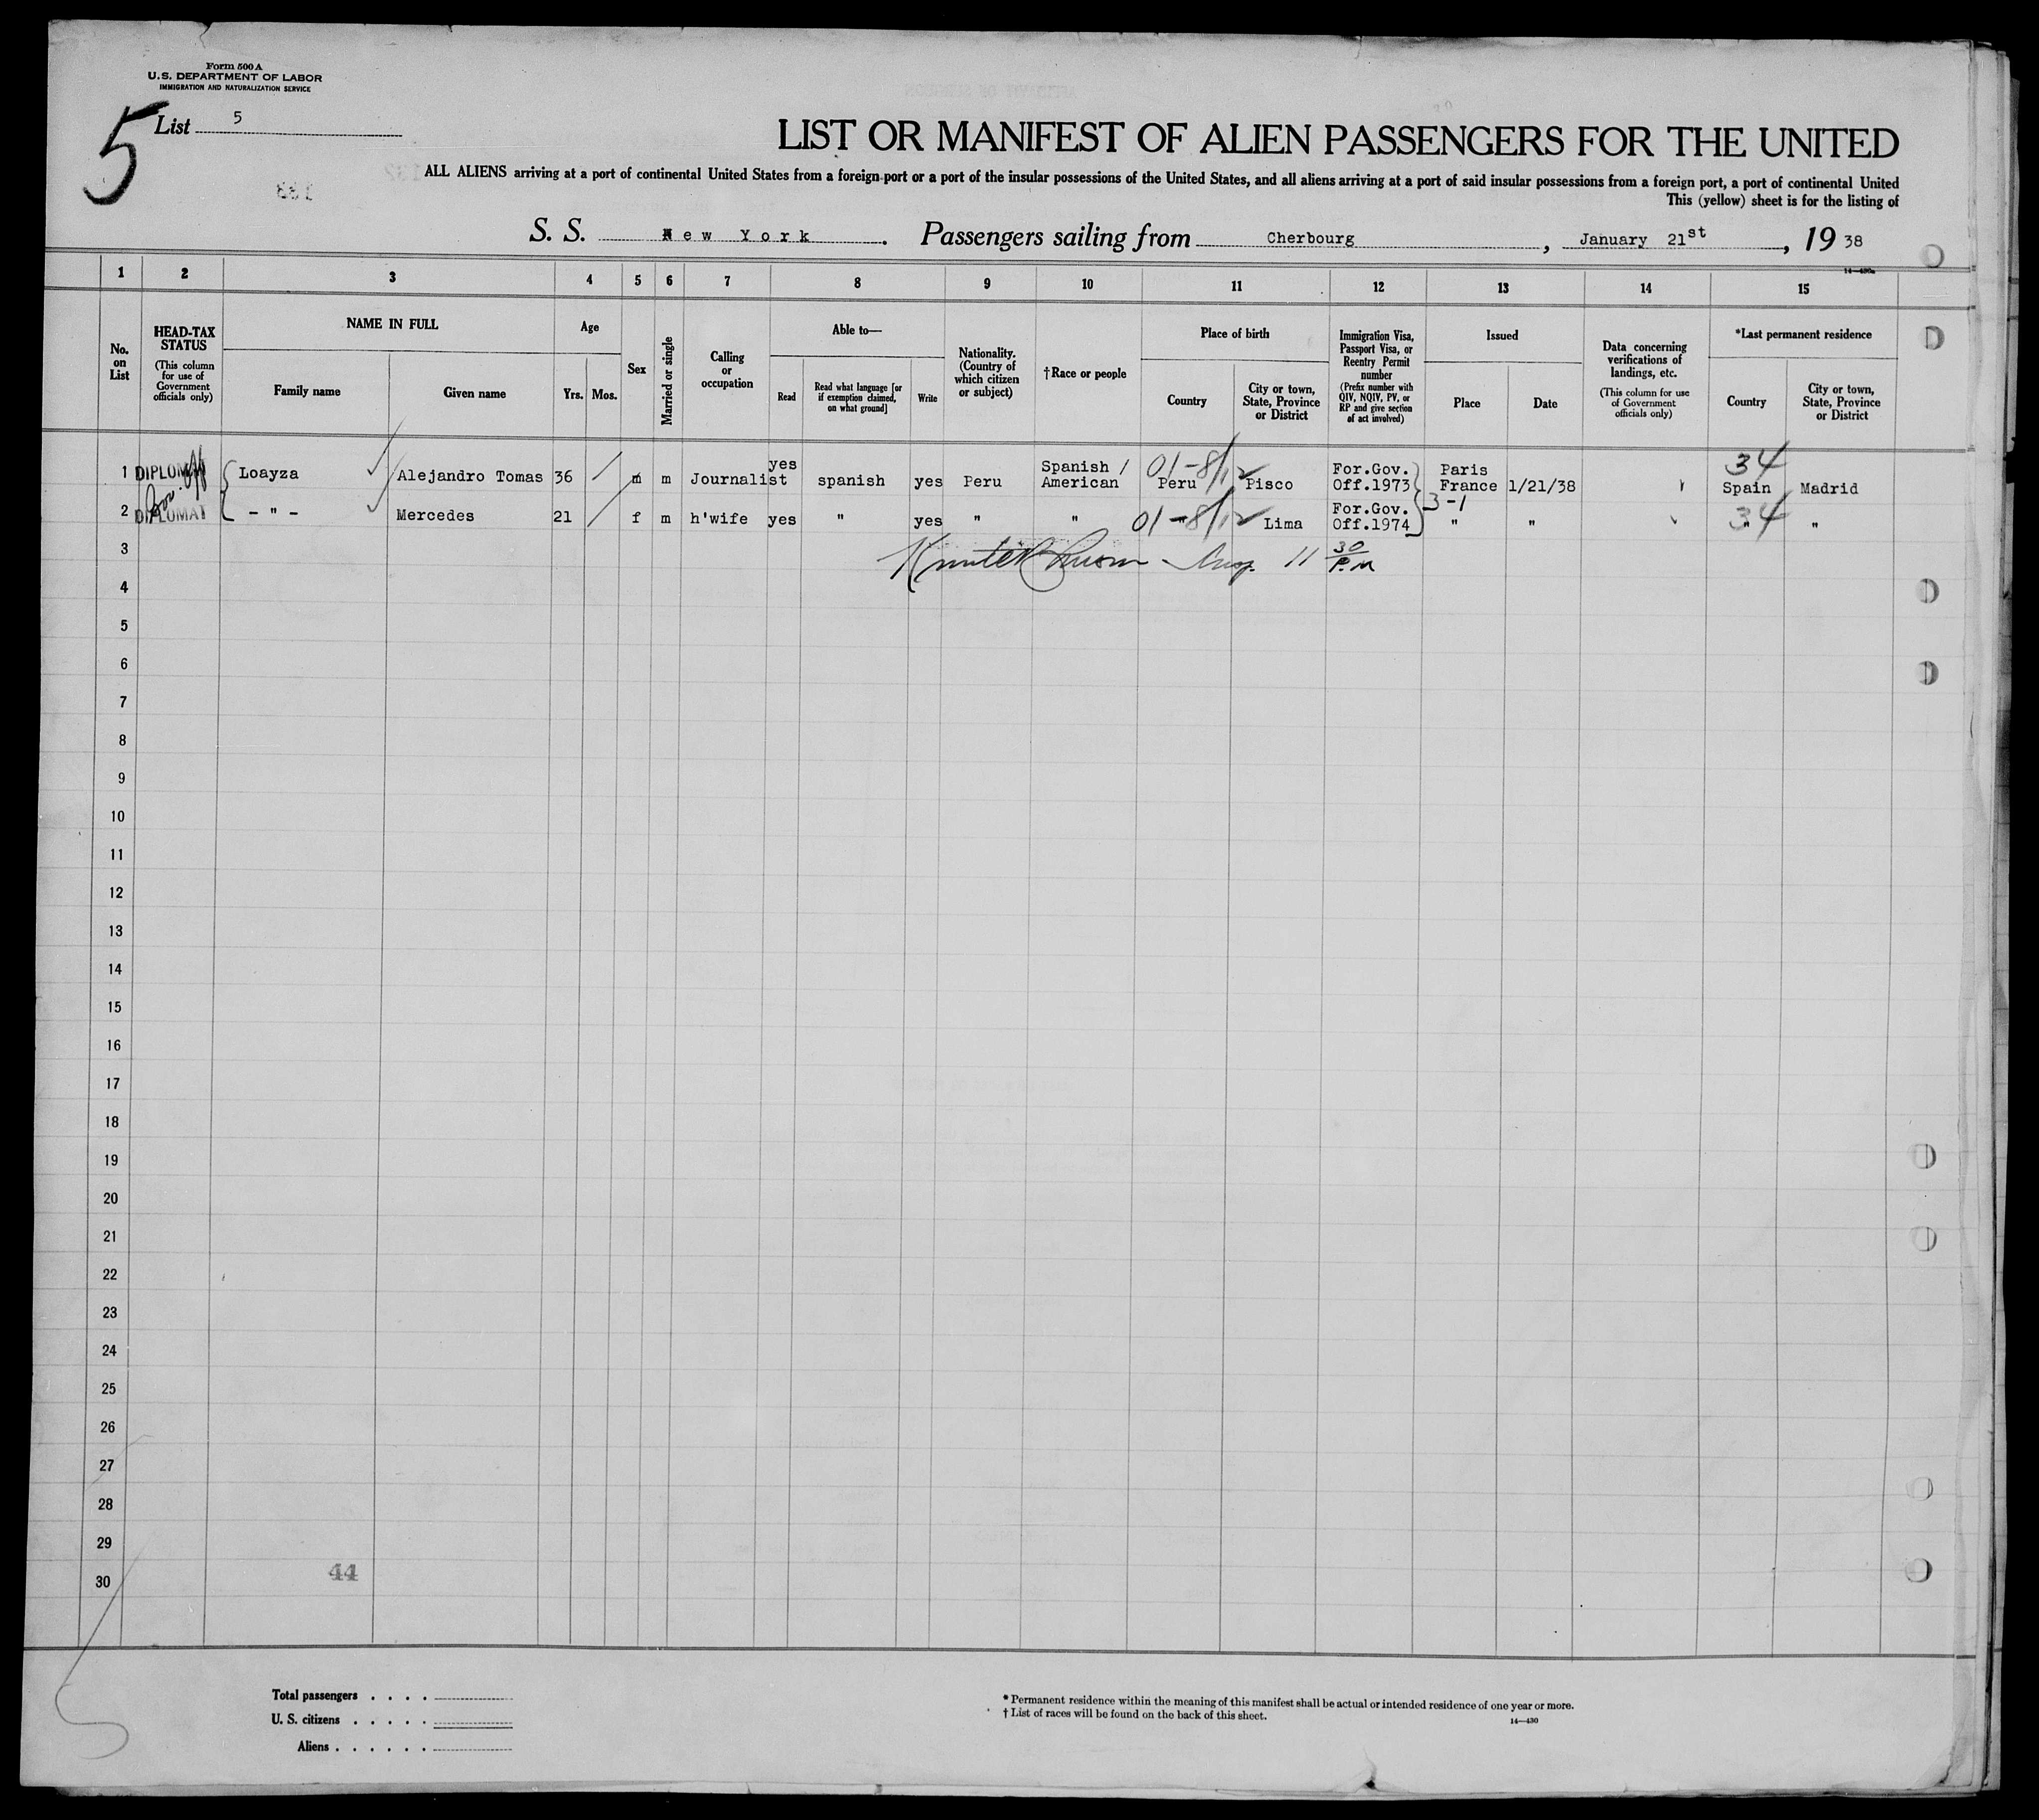 Form 500 A
U.S. DEPARTMENT OF LABOR
IMMIGRATION AND NATURALIZATION SERVICE
5
List 5
133
LIST OR MANIFEST OF ALIEN PASSENGERS FOR THE UNITED
ALL ALIENS arriving at a port of continental United States from a foreign port or a port of the insular possessions of the United States, and all aliens arriving at a port of said insular possessions from a foreign port, a port of continental United
This (yellow) sheet is for the listing of
S. S. New York. Passengers sailing from Cherbourg, January 21st, 19 38
14—430a
1 2 3 4 5 6 7 8 9 10 11 12 13 14 15
No. on List
HEAD-TAX STATUS (This column for use of Government officials only)
NAME IN FULL
Family name
Given name
Age
Yrs. Mos.
Sex
Married or single
Calling or occupation
Able to—
Read
Read what language [or if exemption claimed, on what ground]
Write
Nationality. (Country of which citizen or subject)
†Race or people
Place of birth
Country
City or town, State, Province or District
Immigration Visa, Passport Visa, or Reentry Permit number (Prefix number with QIV, NQIV, PV, or RP and give section of act involved)
Issued
Place
Date
Data concerning verifications of landings, etc. (This column for use of Government officials only)
*Last permanent residence
Country
City or town, State, Province or District
1 DIPLOMAT Loayza Alejandro Tomas 36 m m Journalist yes spanish yes Peru Spanish / American 01-8/12 Peru Pisco For.Gov. Off.1973 Paris France 1/21/38 34 Spain Madrid
Gov. Off
2 DIPLOMAT - " - Mercedes 21 f m h'wife yes " yes " " 01-8/12 " Lima For.Gov. Off.1974 3-1 " " 34 " "
3 Insp. 11 30 P.M
4
5
6
7
8
9
10
11
12
13
14
15
16
17
18
19
20
21
22
23
24
25
26
27
28
29
44
30
Total passengers . . . .
U. S. citizens . . . . .
Aliens . . . . . .
* Permanent residence within the meaning of this manifest shall be actual or intended residence of one year or more.
† List of races will be found on the back of this sheet.
14—430